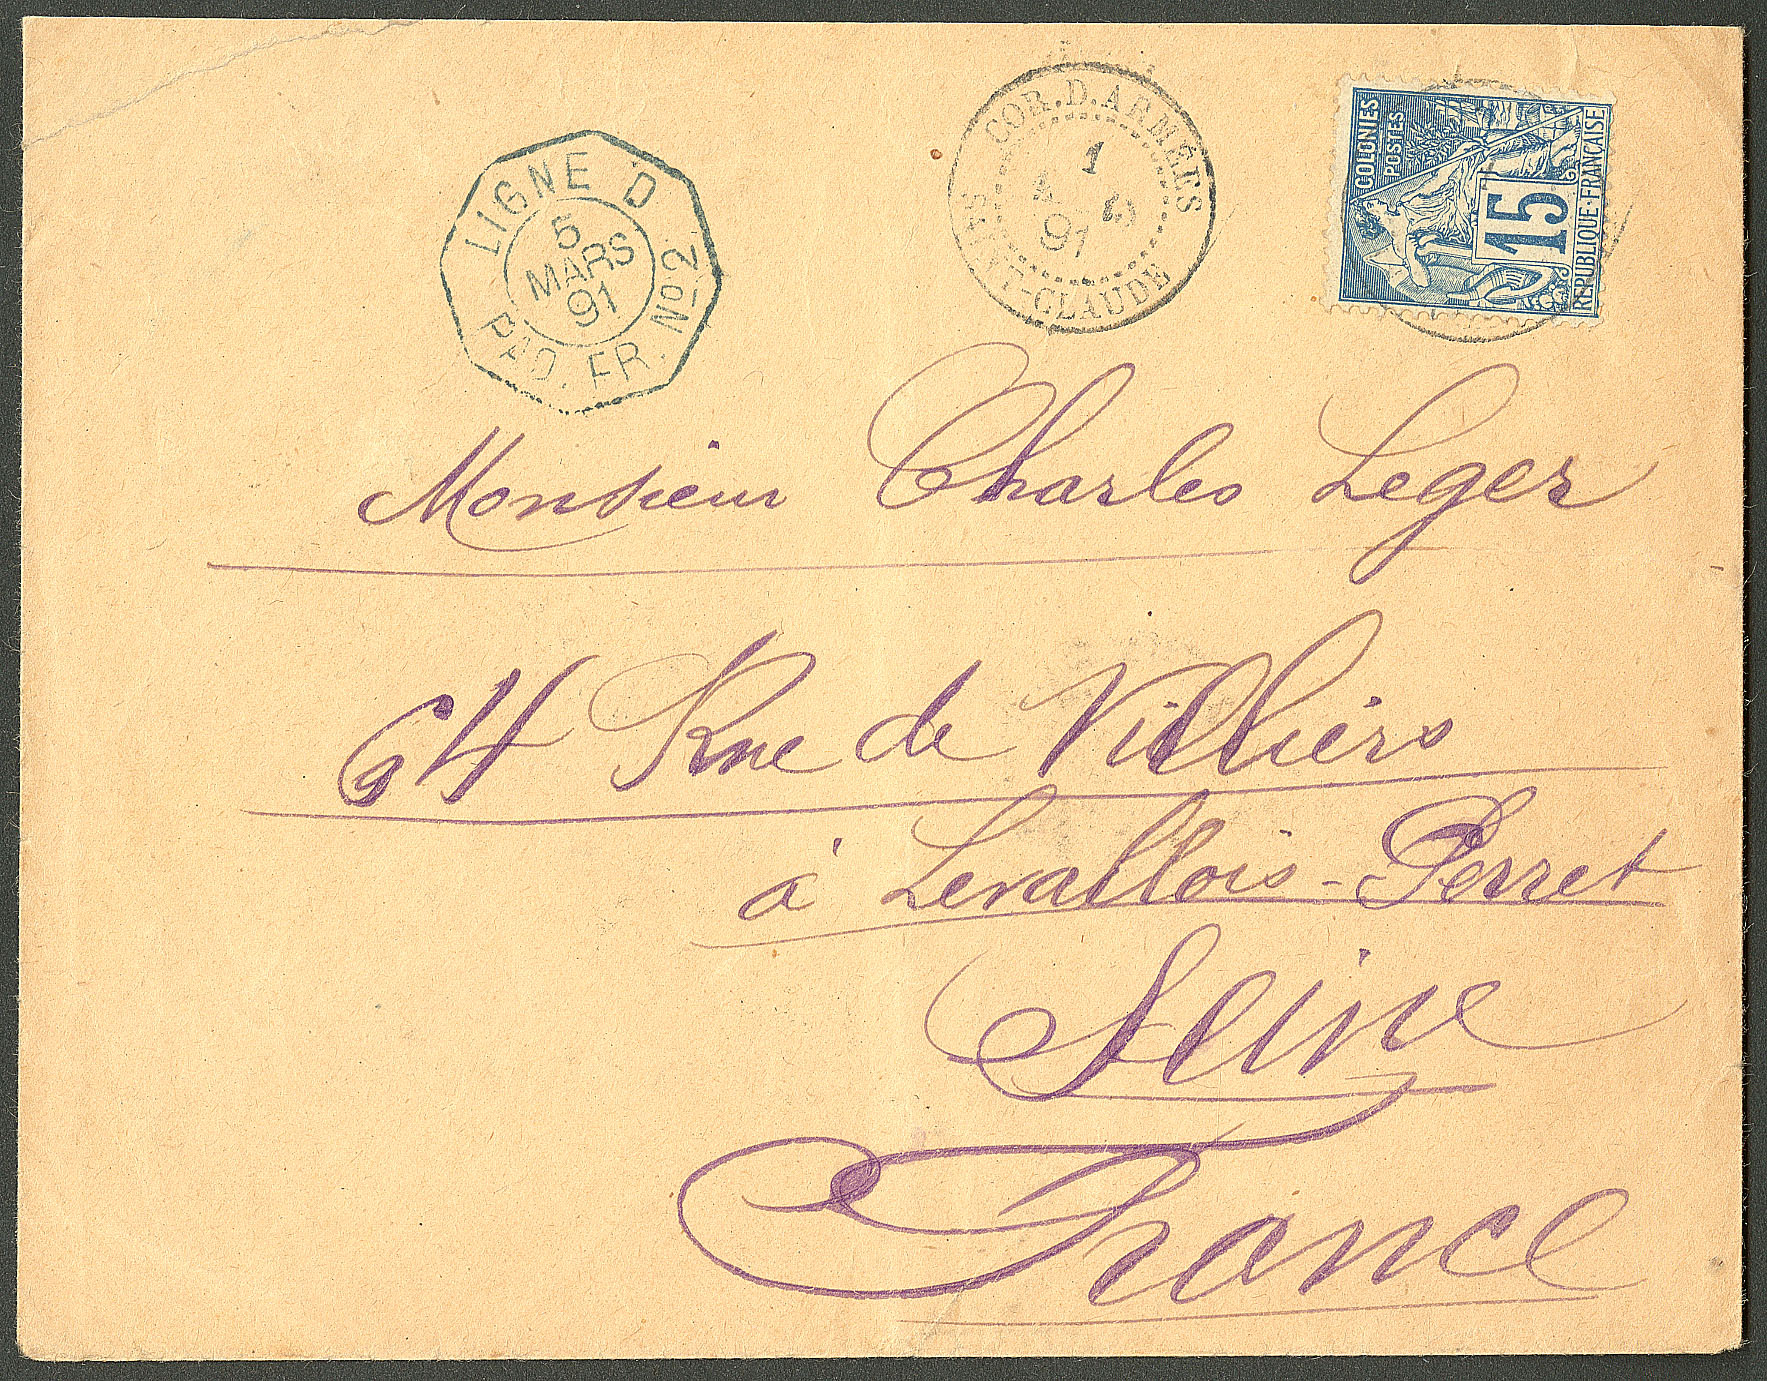 LIGNE D
5
MARS
91
PAQ. FR. No 2
COR. D. ARMÉES
1
91
SAINT-CLAUDE
COLONIES
POSTES
15
REPUBLIQUE·FRANÇAISE
Monsieur Charles Leger
64 Rue de Villiers
à Levallois-Perret
Seine
France